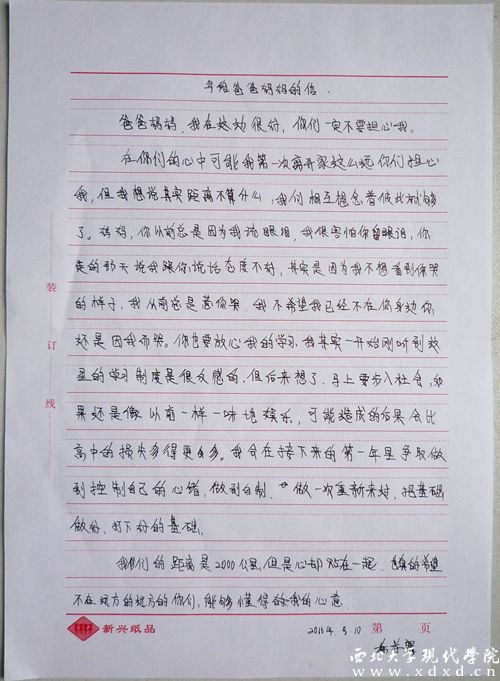 写给爸爸妈妈的信.
爸爸妈妈,我在这边很好,你们一定不要担心我。
在你们的心中可能我第一次离开家这么远你们担心
我,但我想说其实距离不算什么,我们相互想念着彼此就够
了。妈妈,你以前总是因为我流眼泪,我很害怕你留眼泪,你
走的那天说我跟你说话态度不好,其实是因为我不想看到你哭
的样子,我从前总是惹你哭,我不希望我已经不在你身边你
还是因我而哭。你也要放心我的学习,我其实一开始刚听到这
里的学习制度是很反感的,但后来想了,马上要步入社会,如
果还是像以前一样一味地娱乐,可能造成的后果会比
高中的损失多得更多。我会在接下来的第一年里争取做
到控制自己的心绪,做到自制,做一次重新来过,把基础
做好,打下好的基础。
我们的距离是2000公里,但是心却贴在一起,真的希望
不在地方的地方的你们,能够懂得我的心意.
装
订
线
新兴纸品
2016年 3 10
第 页
西北大学现代学院
www.xdxd.cn